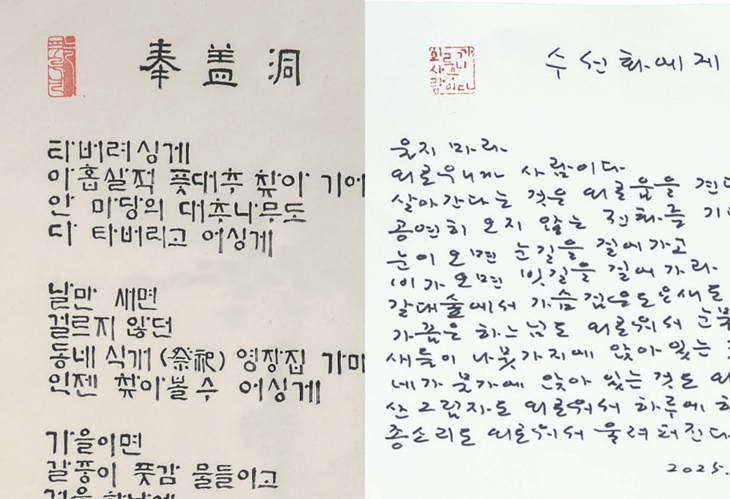 奉盖洞
타버려싱게
아홉살적 풋대추 찾아 기어
안 마당의 대추나무도
다 타버리고 어싱게
날만 새면
걸르지 않던
동네 식개(祭祀) 영장집 가마
인젠 찾아볼 수 어싱게
가을이면
갈풍이 풋감 물들이고
외로우니까 사람이다
수선화에게
울지 마라
외로우니까 사람이다
살아간다는 것은 외로움을
공연히 오지 않는 전화를
눈이 오면 눈길을 걸어가고
비가 오면 빗길을 걸어가라
갈대숲에서 가슴검은도요새도
가끔은 하느님도 외로워서
새들이 나뭇가지에 앉아 있는
네가 물가에 앉아 있는 것도
산그림자도 외로워서 하루에
종소리도 외로워서 울려퍼진다
2025.